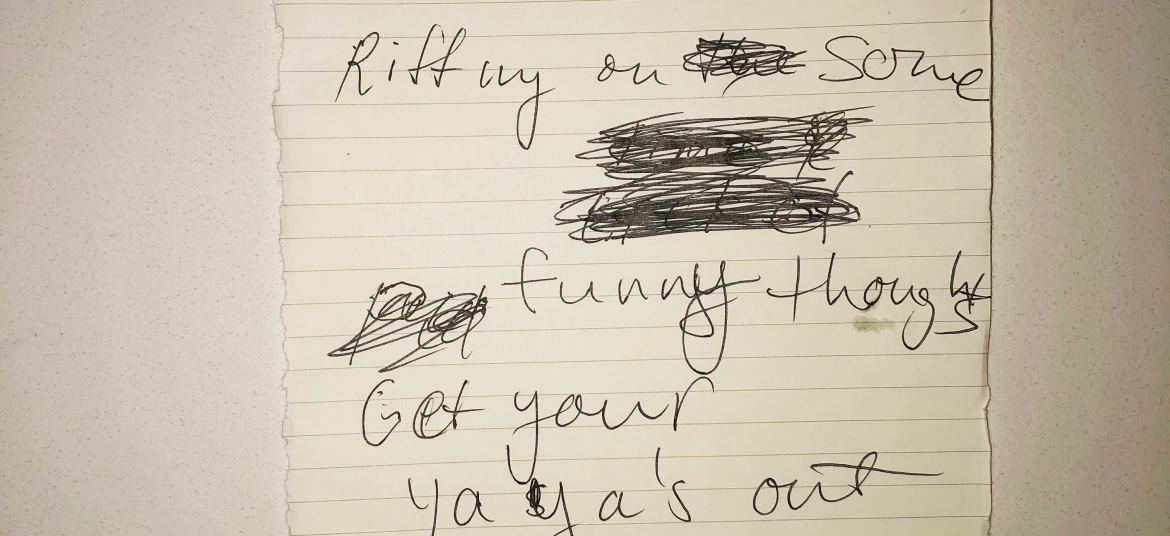 Riffing on some
funny thoughts
Get your
ya ya's out